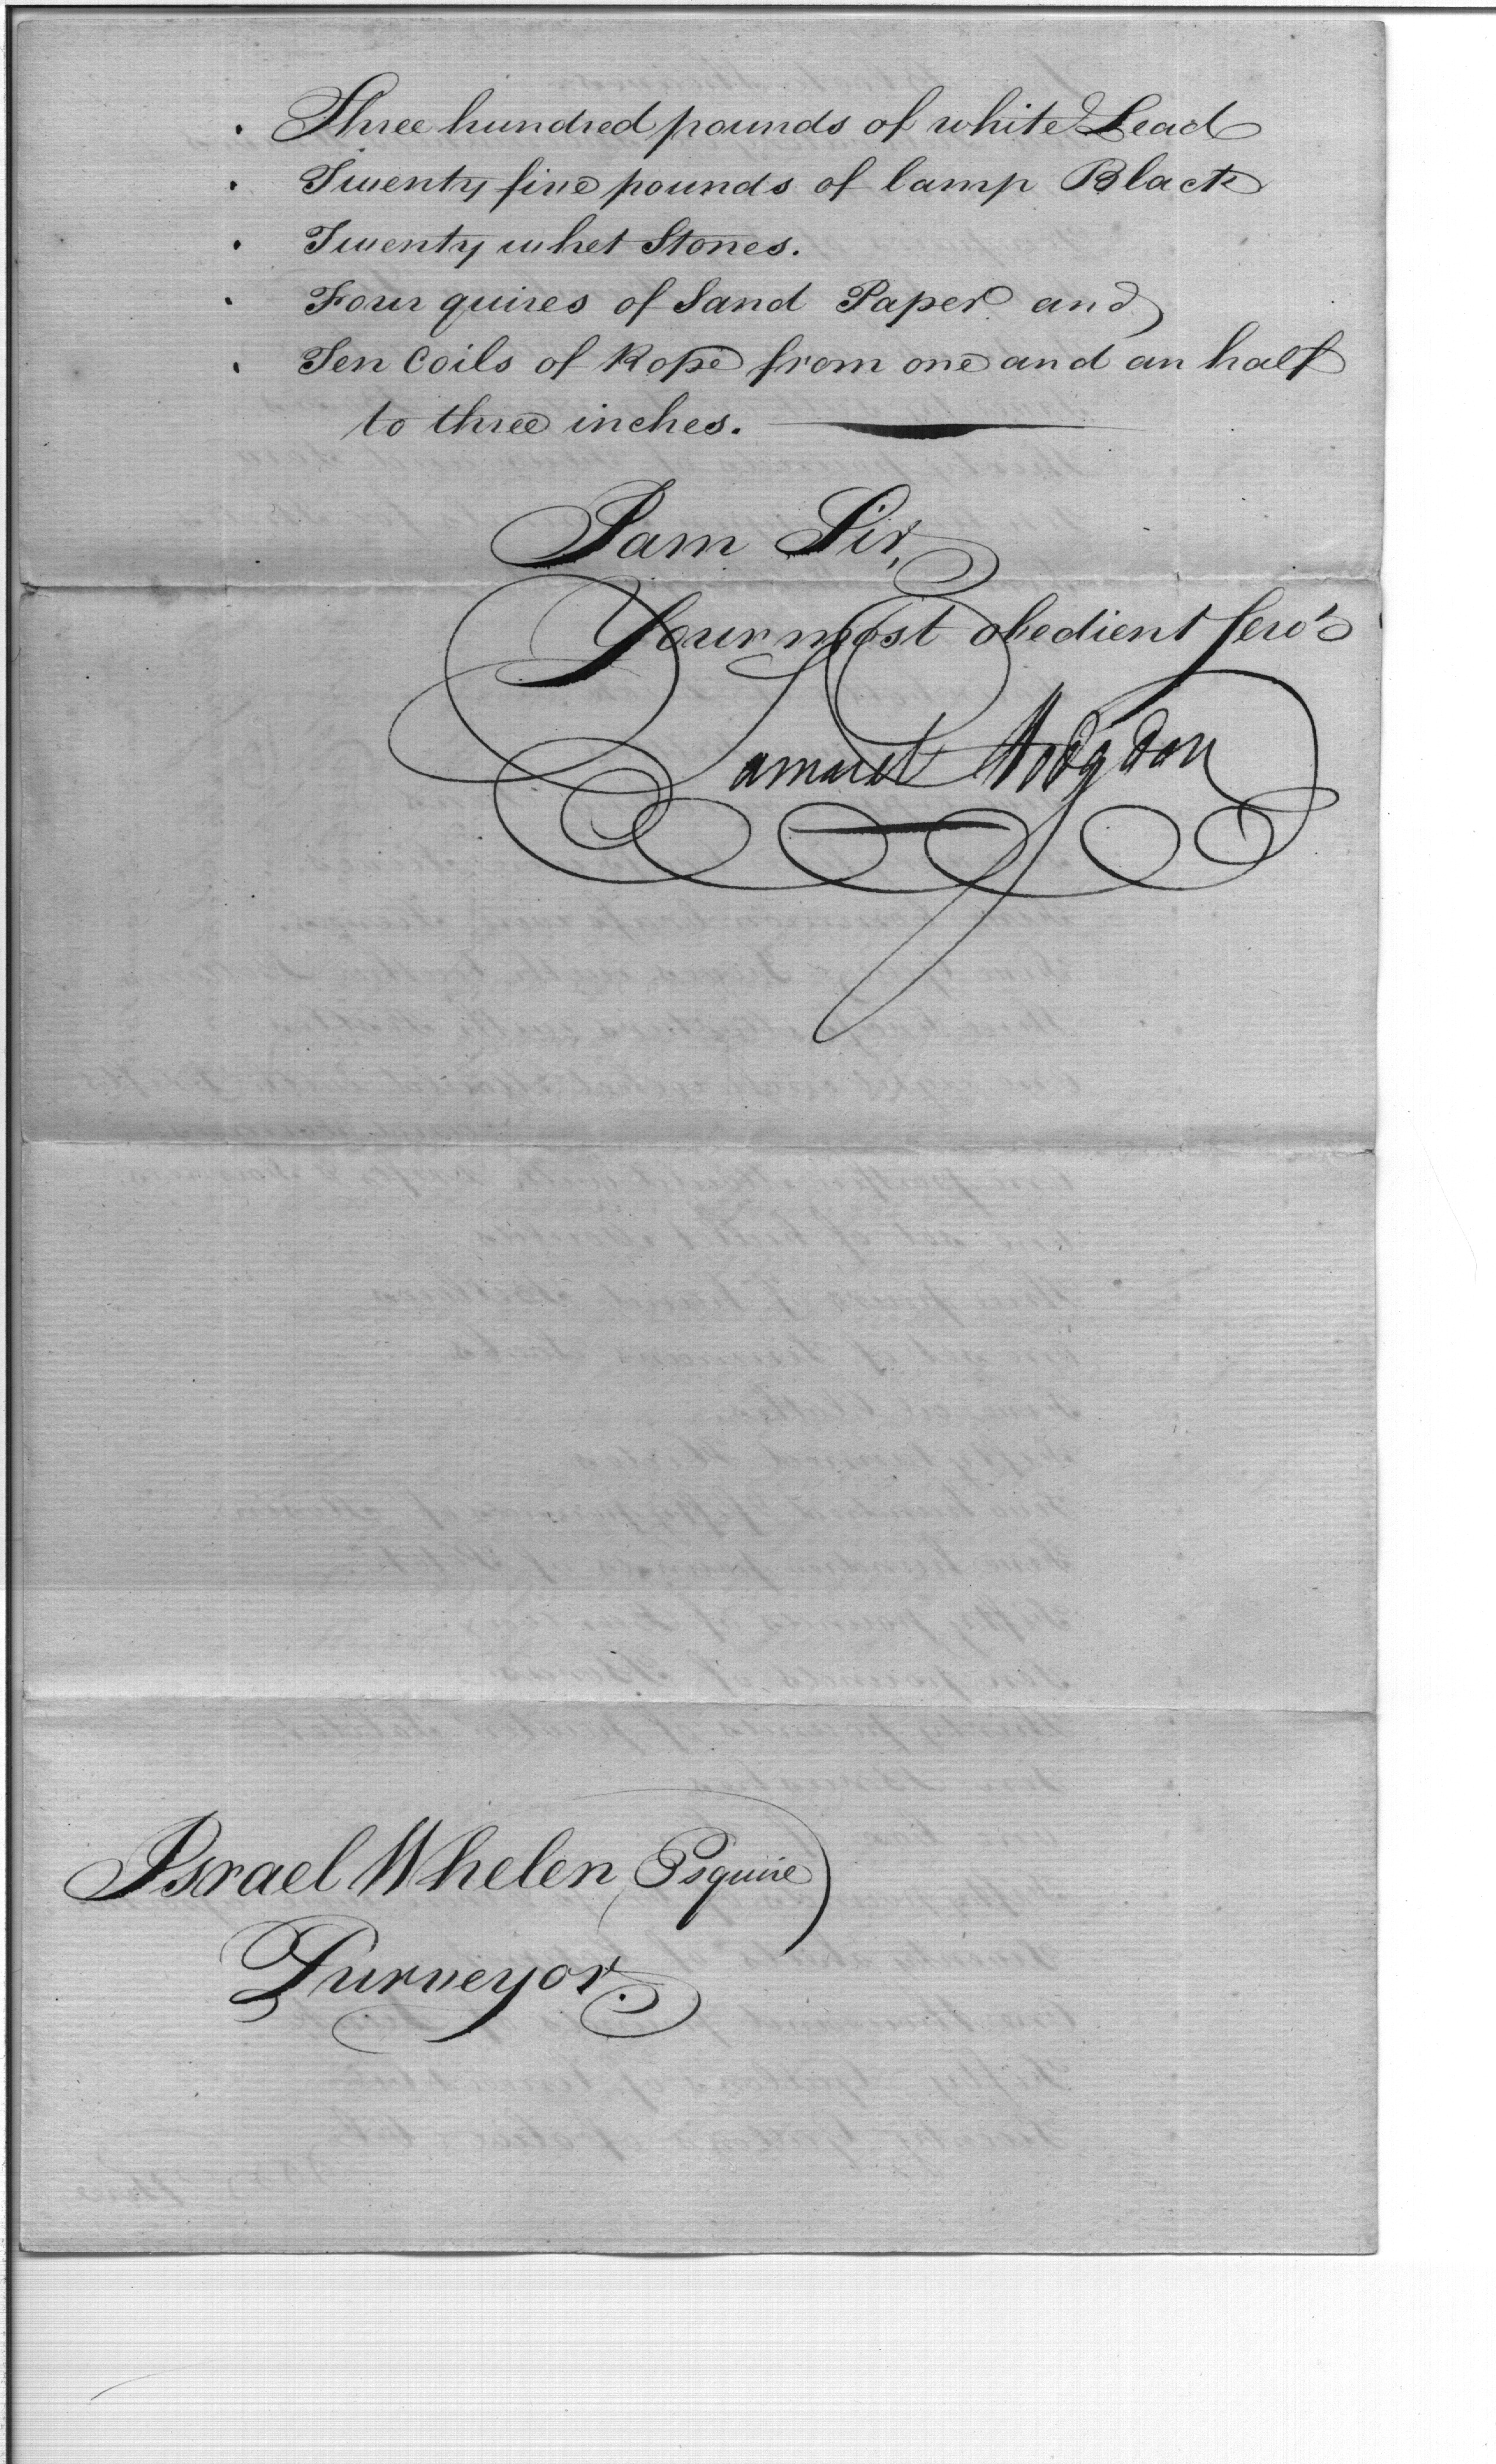 . Three hundred pounds of white Lead
. Twenty five pounds of lamp Black
. Twenty whet Stones.
. Four quires of Sand Paper and
. Ten Coils of Rope from one and an half
to three inches.
I am Sir,
Your most obedient Serv't
Samuel Hodgdon
Israel Whelen Esquire
Purveyor.